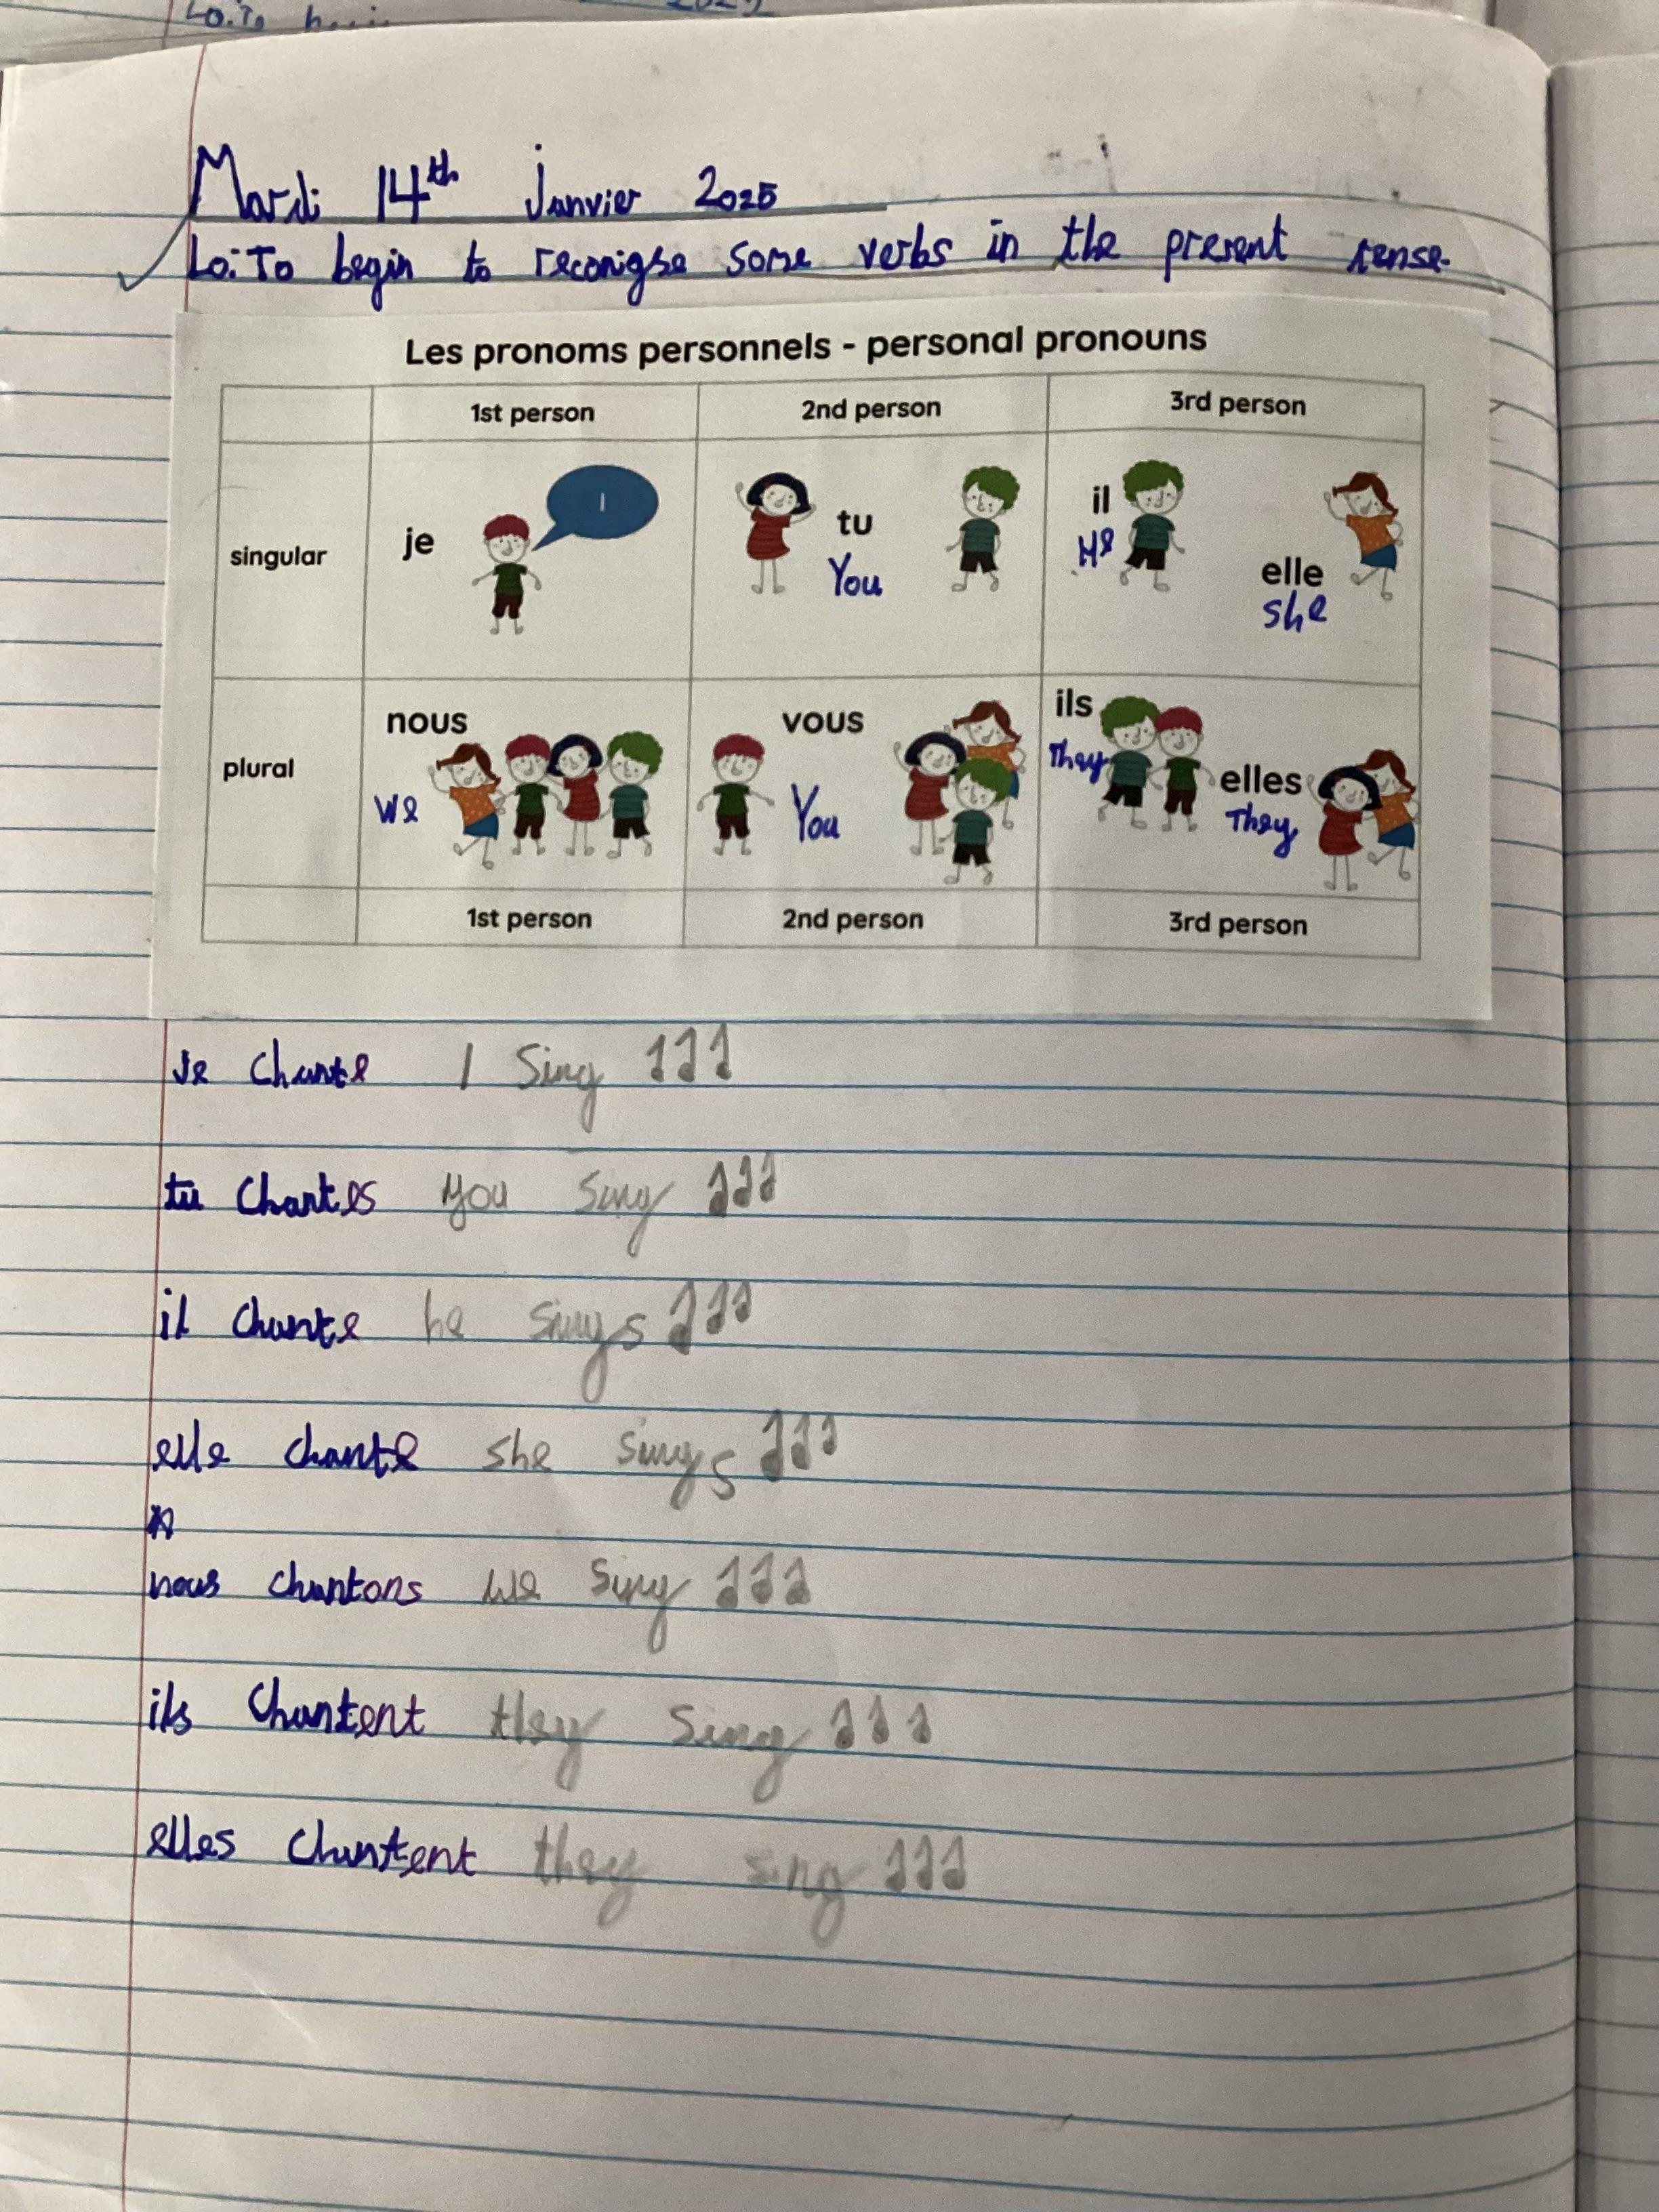 Lo.To
Mardi 14th Janvier 2025
Lo:To begin to reconigse some verbs in the present tense.
Les pronoms personnels - personal pronouns
1st person 2nd person 3rd person
singular je I tu You il He elle she
plural nous We vous You ils They elles They
1st person 2nd person 3rd person
Je chante I Sing
tu chantes you sing
il chante he sings
elle chante she sings
nous chantons we sing
ils chantent they sing
elles chantent they sing